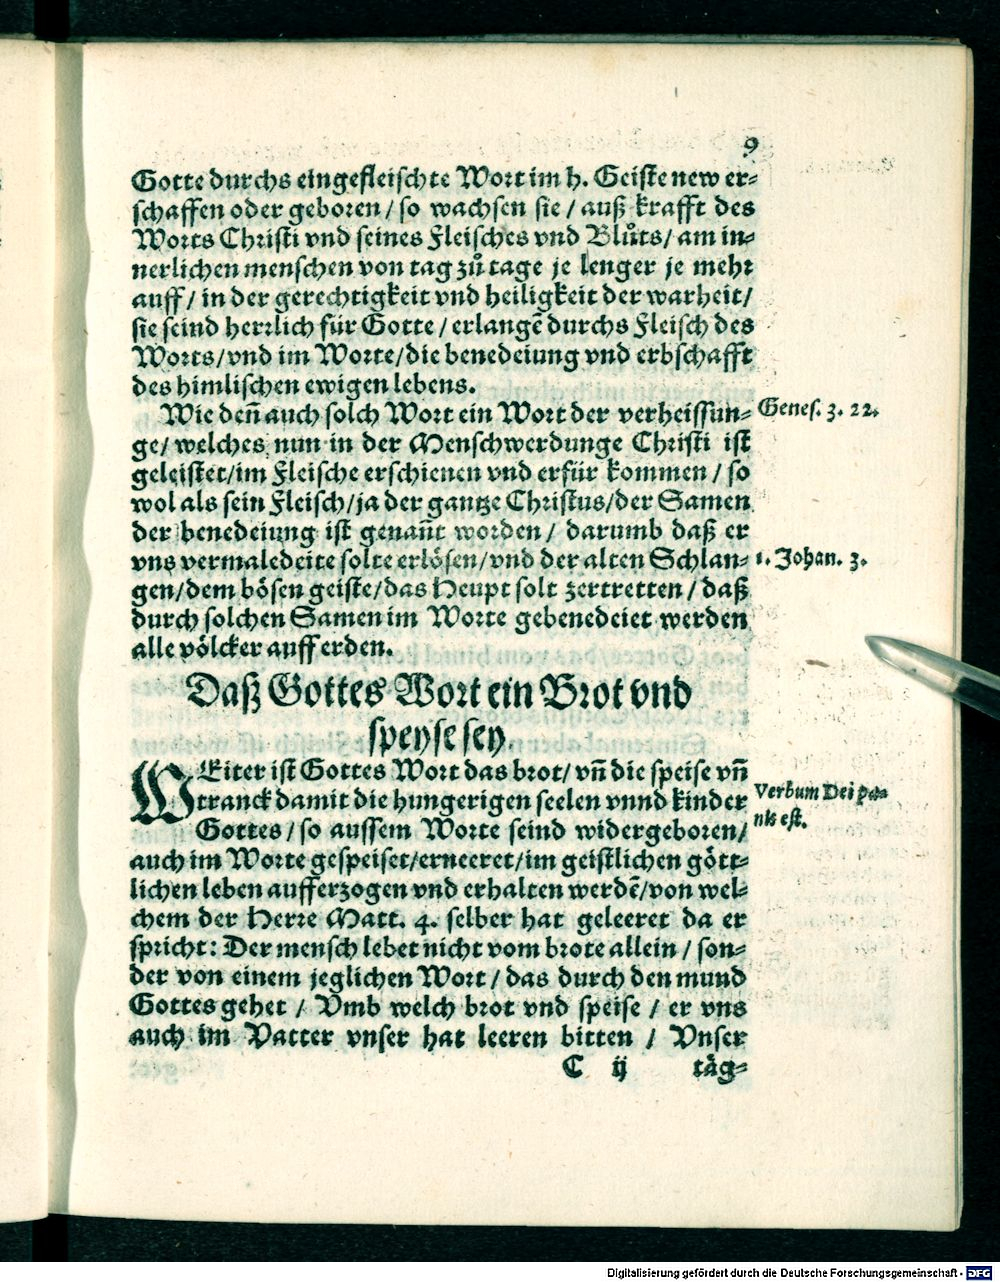 9
Gotte durchs eingefleischte Wort im h. Geiste new er⸗
schaffen oder geboren / so wachsen sie / auß krafft des
Worts Christi vnd seines Fleisches vnd Bluͦts / am in⸗
nerlichen menschen von tag zuͦ tage je lenger je mehr
auff / in der gerechtigkeit vnd heiligkeit der warheit /
sie seind herrlich für Gotte / erlangẽ durchs Fleisch des
Worts / vnd im Worte / die benedeiung vnd erbschafft
des himlischen ewigen lebens.
Wie deñ auch solch Wort ein Wort der verheissun⸗
Genes. 3. 22.
ge / welches nun in der Menschwerdunge Christi ist
geleistet / im Fleische erschienen vnd erfür kommen / so
wol als sein Fleisch / ja der gantze Christus / der Samen
der benedeiung ist genañt worden / darumb daß er
vns vermaledeite solte erlösen / vnd der alten Schlan⸗
1. Johan. 3.
gen / dem bösen geiste / das Heupt solt zertretten / daß
durch solchen Samen im Worte gebenedeiet werden
alle völcker auff erden.
Daß Gottes Wort ein Brot vnd
speyse sey.
WEiter ist Gottes Wort das brot / vñ die speise vñ
tranck damit die hungerigen seelen vnnd kinder
Verbum Dei pa⸗
nis est.
Gottes / so aussem Worte seind widergeboren /
auch im Worte gespeiset / erneeret / im geistlichen gött⸗
lichen leben aufferzogen vnd erhalten werdẽ / von wel⸗
chem der Herre Matt. 4. selber hat geleeret da er
spricht: Der mensch lebet nicht vom brote allein / son⸗
der von einem jeglichen Wort / das durch den mund
Gottes gehet / Vmb welch brot vnd speise / er vns
auch im Vatter vnser hat leeren bitten / Vnser
C ij täg⸗
Digitalisierung gefördert durch die Deutsche Forschungsgemeinschaft - DFG